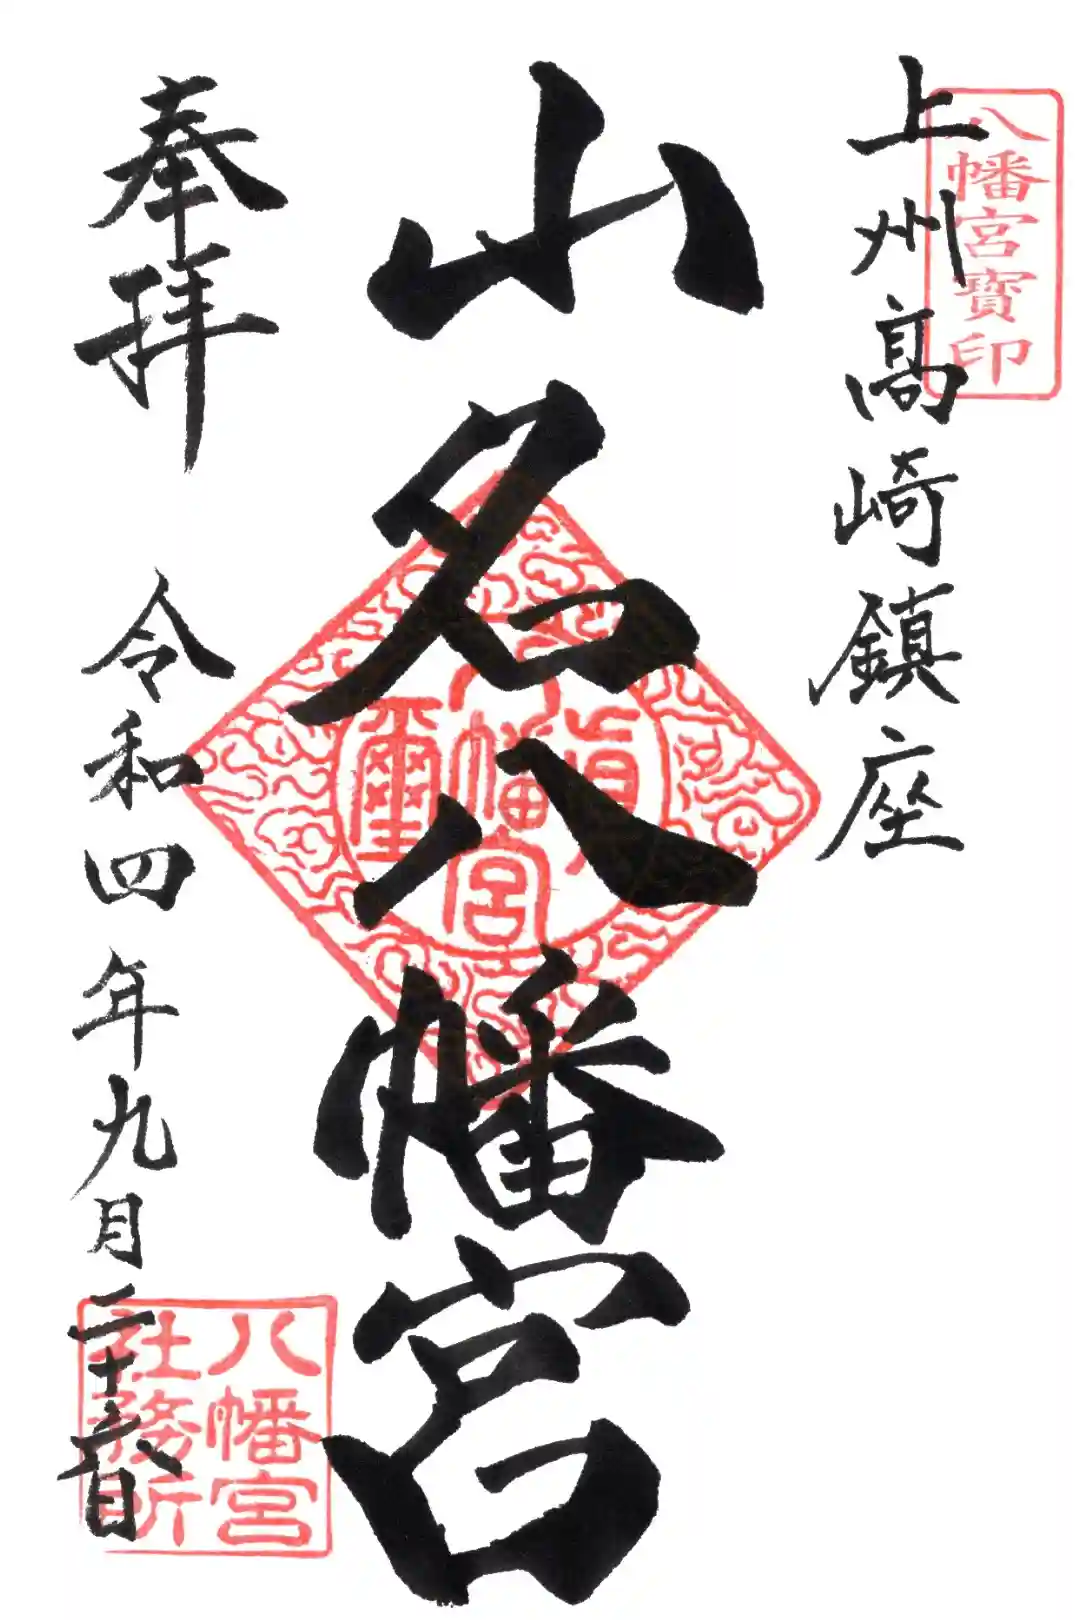 八幡宮寶印
上州髙崎鎮座
山名八幡宮
八幡宮
奉拝
令和四年九月二十六日
八幡宮
社務所